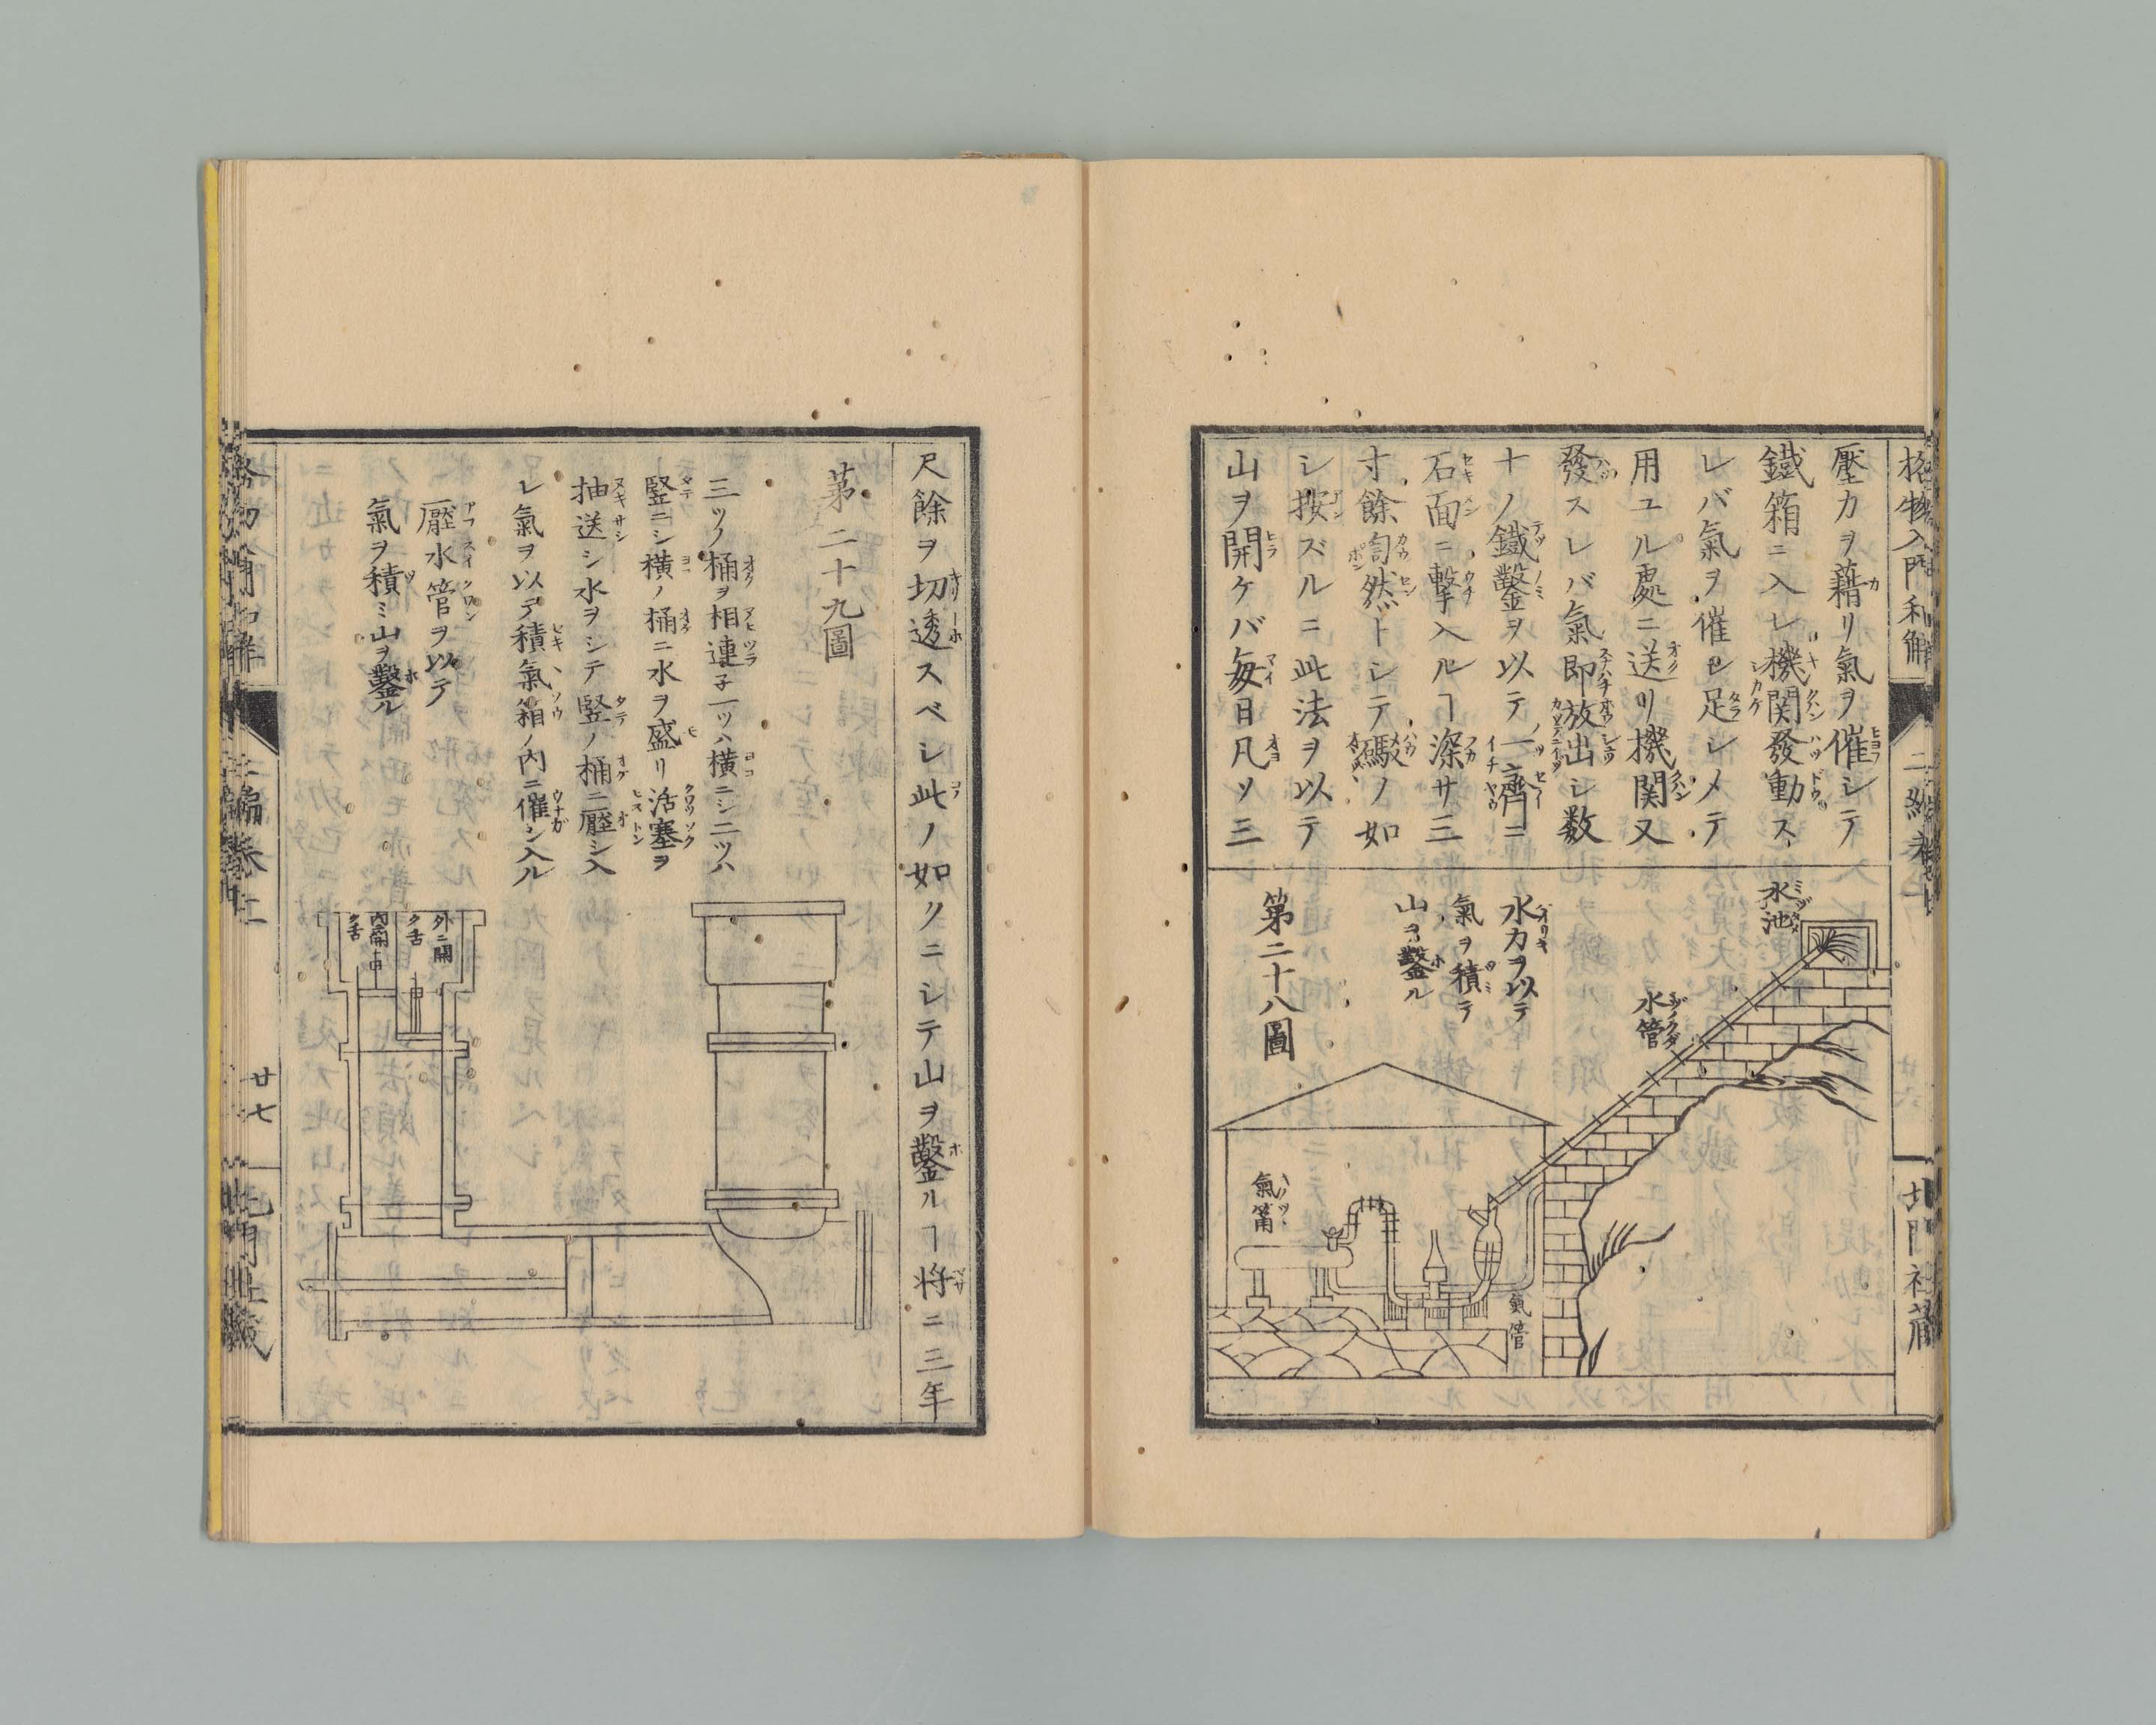 格物入門和解
二編卷
北門社藏
壓力ヲ藉リ氣ヲ催シテ
鐵箱ニ入レ機関發動ス
レバ氣ヲ催シ足レメテ
用ユル處ニ送リ機関又
發スレバ氣即放出シ数
十ノ鐵鑿ヲ以テ一齊ニ
石面ニ擊入ルヿ深サ三
寸餘訇然トシテ礟ノ如
シ按ズルニ此法ヲ以テ
山ヲ開ケバ毎日凡ソ三
水池
水管
水力ヲ以テ
氣ヲ積テ
山ヲ鑿ル
第二十八圖
氣筩
氣管
尺餘ヲ切透スベシ此ノ如クニシテ山ヲ鑿ルヿ将ニ三年
第二十九圖
三ツノ桶ヲ相連子一ツハ横ニシ二ツハ
竪ニシ横ノ桶ニ水ヲ盛リ活塞ヲ
抽送シ水ヲシテ竪ノ桶ニ壓シ入
レ氣ヲ以テ積氣箱ノ内ニ催シ入ル
壓水管ヲ以テ
氣ヲ積ミ山ヲ鑿ル
外ニ開
ク舌
内ニ開
ク舌
二編卷二
廿七
北門社藏